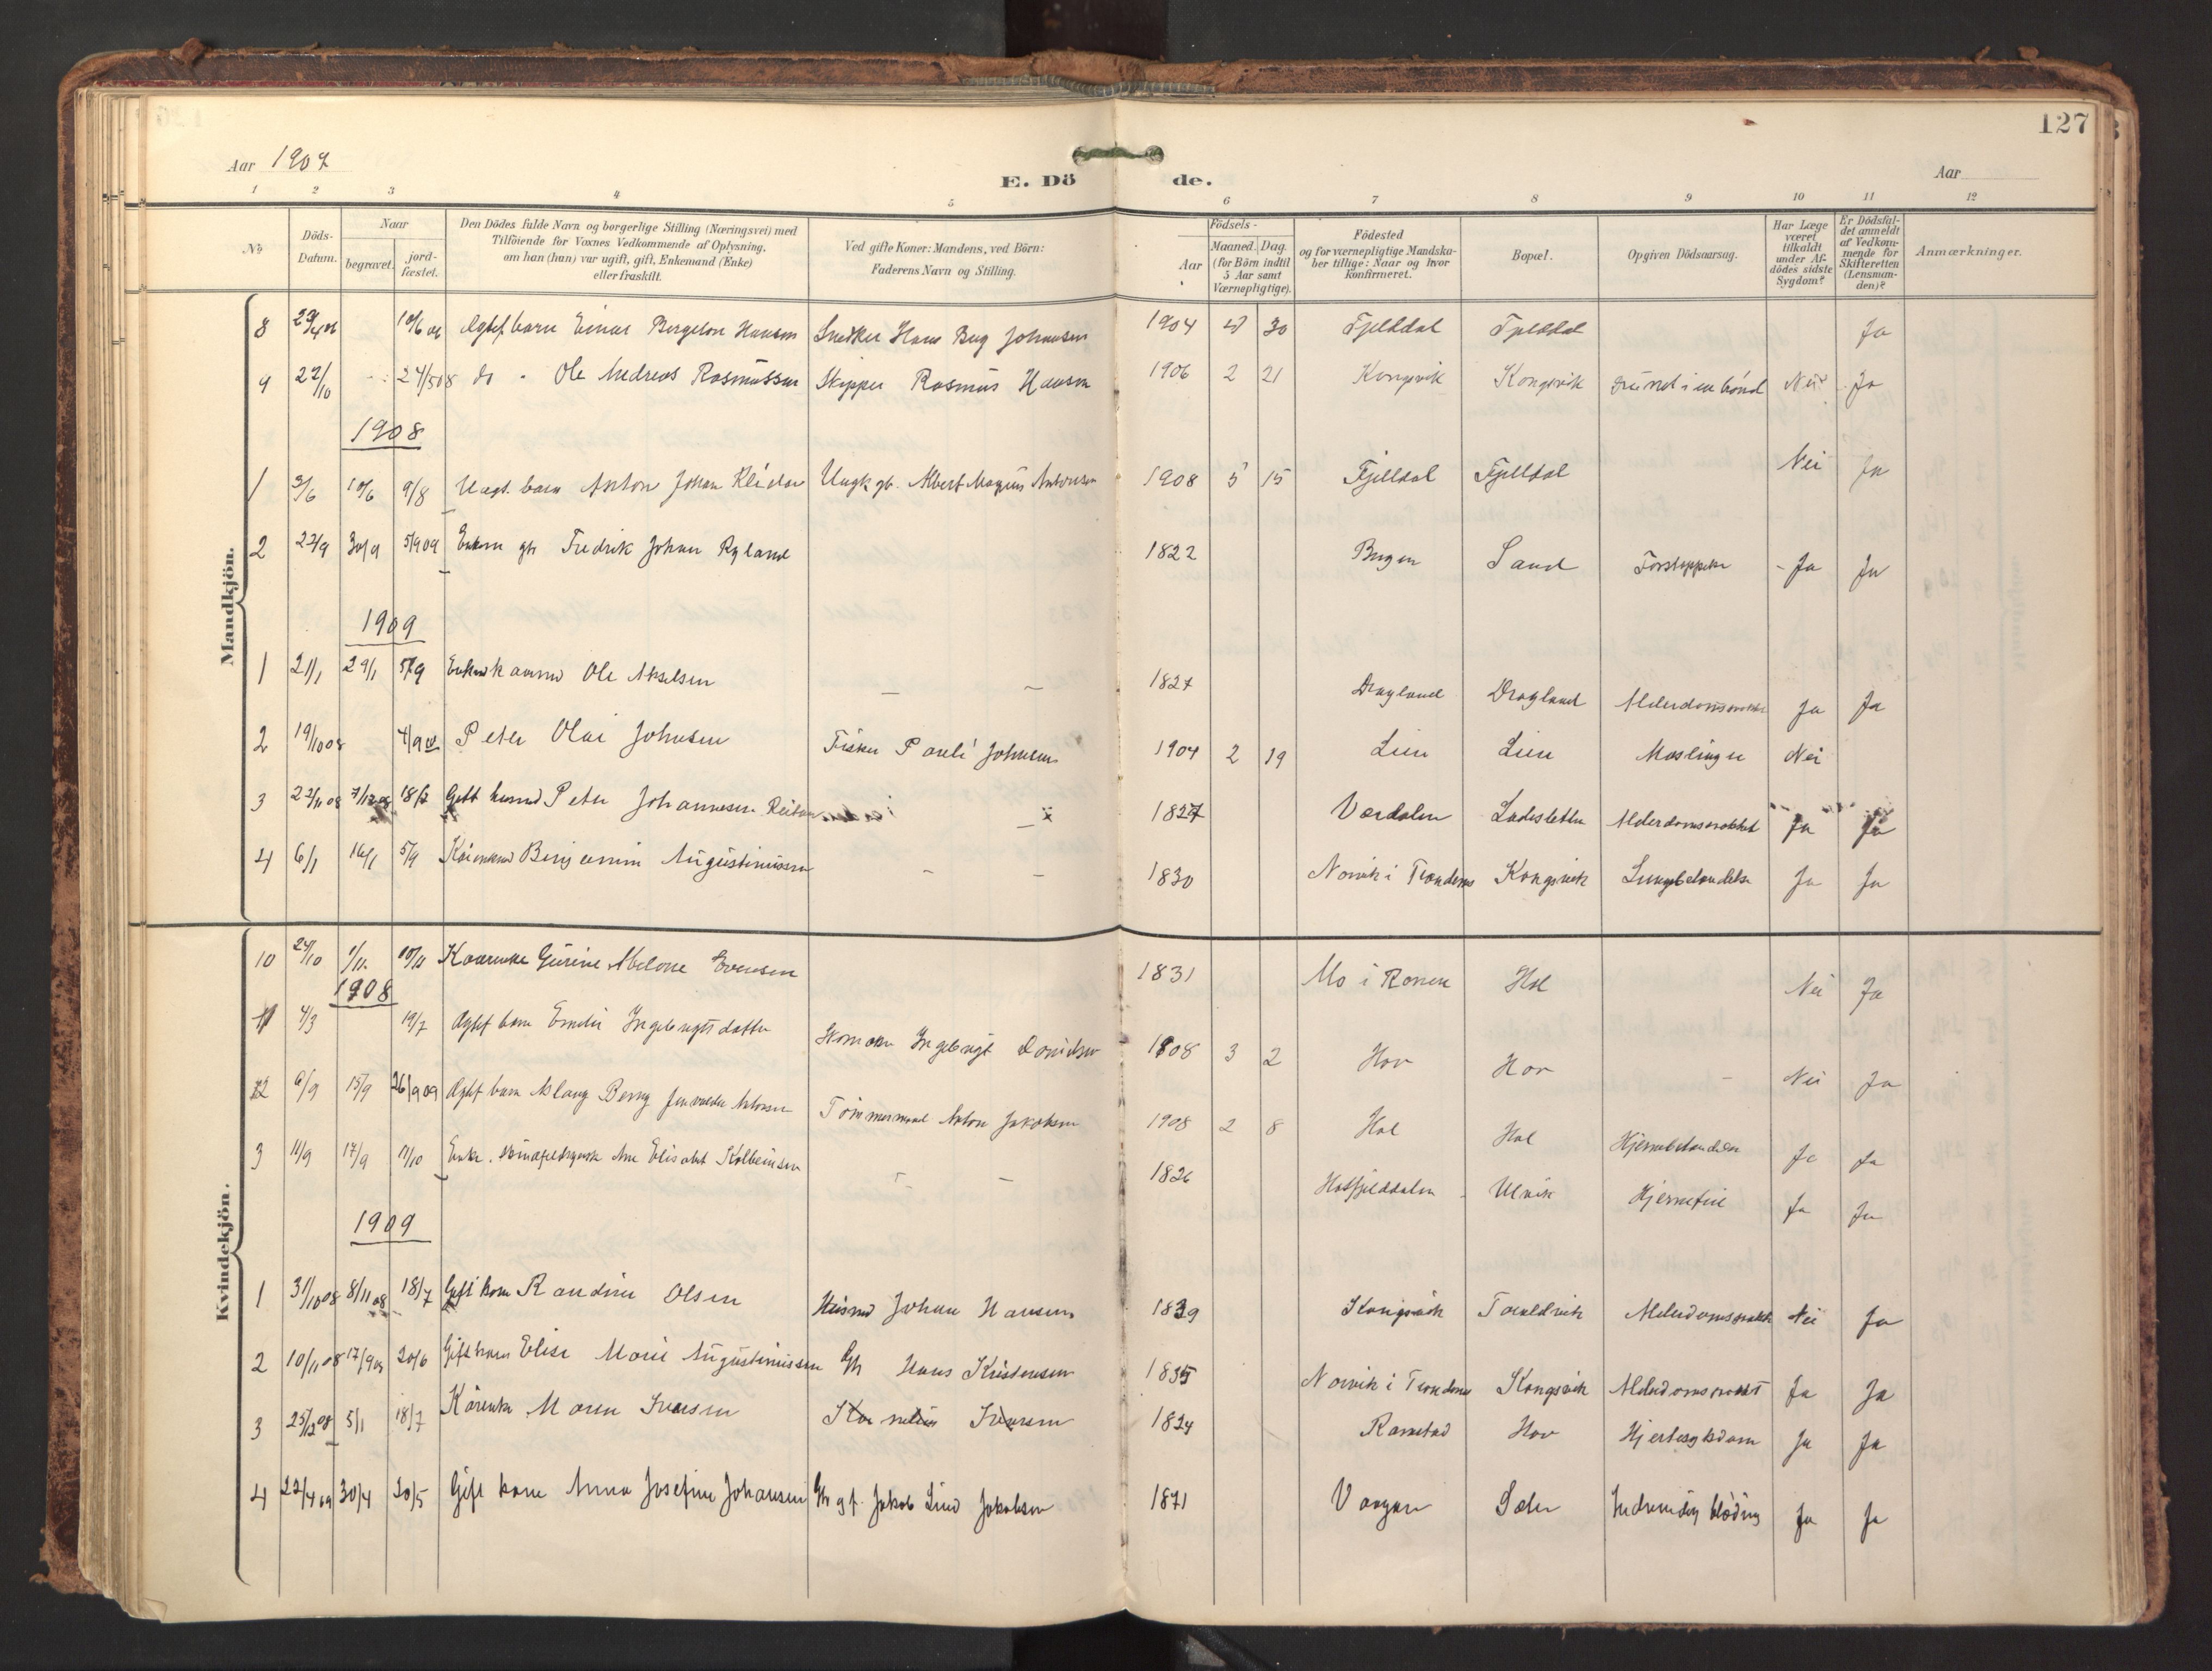 127
Aar 1907
E. Dö de.
Aar
1 2 3 4 5 6 7 8 9 10 11 12
No. Döds-Datum. Naar begravet. jord-fæstet. Den Dödes fulde Navn og borgerlige Stilling (Næringsvei) med Tilföiende for Voxnes Vedkommende af Oplysning, om han (hun) var ugift, gift, Enkemand (Enke) eller fraskilt. Ved gifte Koner: Mandens, ved Börn: Faderens Navn og Stilling. Födsels- Aar Maaned. Dag. (for Börn indtil 5 Aar samt Værnepligtige). Födested og for værnepligtige Mandskaber tillige: Naar og hvor konfirmeret. Bopæl. Opgiven Dödsaarsag. Har Læge været tilkaldt under Afdödes sidste Sygdom? Er Dödsfaldet anmeldt af Vedkommende for Skifteretten (Lensmanden)? Anmærkninger.
Mandkjön.
8 29/4 06 10/6 06 Ægtef barn Einar Bergeton Hansen Snedker Hans Berg Johansen 1904 30 Fjelddal Fjelddal Ja
9 22/10 24/5 08 do - Ole Andreas Rasmussen Skipper Rasmus Hansen 1906 2 21 Kongsvik Kongsvik Nei Ja
1908
1 3/6 10/6 9/8 Uægt. barn Anton Johan Ungk gb. Albert Magnus Antonsen 1908 5 15 Fjelldal Fjelldal Nei Ja
2 22/9 30/9 5/9 09 Enkem gb Fredrik Johan Ryland 1822 Bergen Sand Forstoppelse - Ja Ja
1909
1 21/1 29/1 5/9 Ole Akselsen — — 1827 Dragland Dragland Alderdomssvakhet Ja Ja
2 19/10 08 4/9 Peter Olai Johnsen Fisker Pauli Johnsen 1904 2 19 Lien Lien Meslinger Nei
3 22/11 08 7/12 08 18/7 Gift husmd Peter Johannesen 1827 Værdalen Ladesletten Alderdomssvakhet Ja Ja
4 6/1 16/1 5/9 Kårmand Benjamin Augustinussen - - 1830 Norvik i Trondenes Kongsvik Lungebetændelse Ja Ja
Kvindekjön.
10 24/10 1/11 10/11 Kaarenke Gurine Abelone Evensen 1831 Mo i Ranen Hol Nei Ja
1908
1 4/3 19/7 Ægtef barn Emelie Ingebrigtsdatter Skomaker Ingebrigt Davidsen 1908 3 2 Hov Hov - Nei Ja
2 6/9 15/9 26/9 09 Ægtef barn Aslaug Tömmermand Anton Jakobsen 1908 2 8 Hol Hol Hjernebetændelse Ja Ja
3 11/9 17/9 11/10 Enke. Ane Elisabet Kolbeinsen - - 1826 Hatfjelddalen Ulvik Ja Ja
1909
1 31/10 08 8/11 08 18/7 Gift kone Randine Olsen Husmd Johan Hansen 1839 Kongsvik Taraldvik Alderdomssvakh Nei Ja
2 10/11 08 17/9 09 20/6 Gift kone Elise Marie Augustinussen Gb Hans Kristensen 1835 Norvik i Trondenes Kongsvik Alderdomssvakhet Ja Ja
3 25/12 08 5/1 18/7 Kårenke Maren Iversen Kornelius Iversen 1824 Ramstad Hov Hjertesygdom Ja Ja
4 22/4 09 30/4 20/5 Gift kone Anna Josefine Johansen Gb g f. Jakob Lind Jakobsen 1871 Vaagan Sæter Indvendig blödning Ja Ja